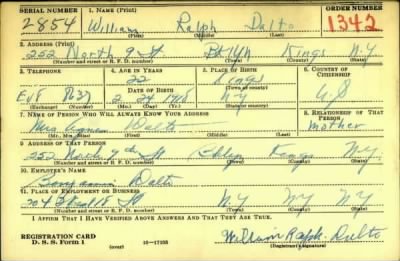 SERIAL NUMBER 1. NAME (Print) ORDER NUMBER
2854 William Ralph Dalto 1342
(First) (Middle) (Last)
2. ADDRESS (Print)
252 North 9 St Bklyn Kings N.Y.
(Number and street or R. F. D. number) (Town) (County) (State)
3. TELEPHONE 4. AGE IN YEARS 5. PLACE OF BIRTH 6. COUNTRY OF CITIZENSHIP
22 Kings
DATE OF BIRTH (Town or county)
EV8 7637 2 24 1918 N.Y. U.S.
(Exchange) (Number) (Mo.) (Day) (Yr.) (State or country)
7. NAME OF PERSON WHO WILL ALWAYS KNOW YOUR ADDRESS 8. RELATIONSHIP OF THAT PERSON
Mrs Dalto Mother
(Mr., Mrs., Miss) (First) (Middle) (Last)
9. ADDRESS OF THAT PERSON
252 North 9th St Bklyn Kings N.Y.
(Number and street or R. F. D. number) (Town) (County) (State)
10. EMPLOYER'S NAME
Benjamin Dalto
11. PLACE OF EMPLOYMENT OR BUSINESS
704 St N.Y NY NY
(Number and street or R. F. D. number) (Town) (County) (State)
I AFFIRM THAT I HAVE VERIFIED ABOVE ANSWERS AND THAT THEY ARE TRUE.
REGISTRATION CARD William Ralph Dalto
D. S. S. Form 1 (over) 16—17105 (Registrant's signature)